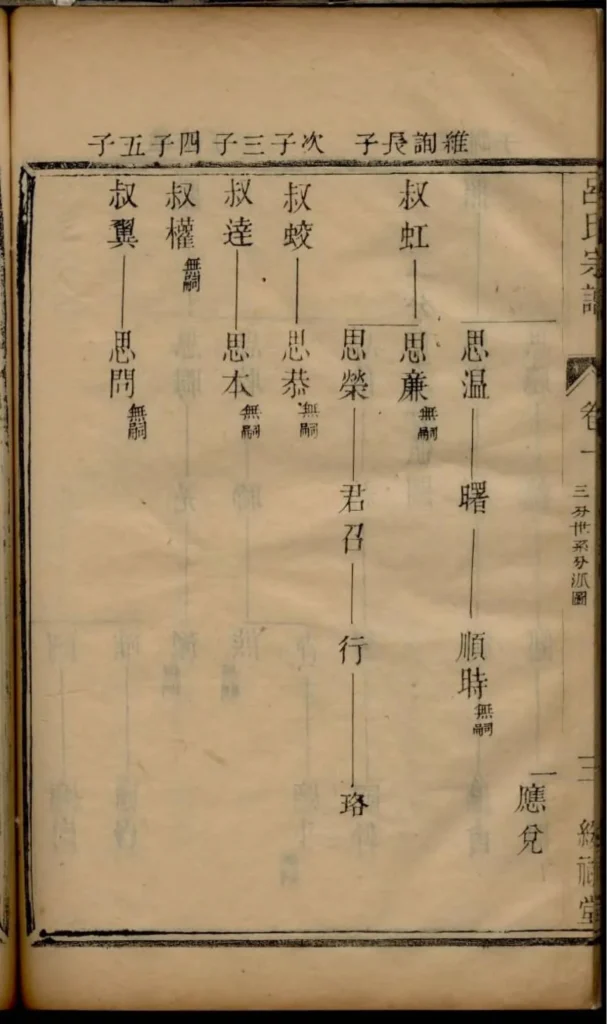 呂氏宗譜
卷一
三分世系分派圖
三
維詢長子
次子
三子
四子
五子
一應兌
思温
曙
順時無嗣
叔虹
思亷無嗣
思榮
君召
行
珞
叔蛟
思恭無嗣
叔達
思本無嗣
叔權無嗣
叔翼
思問無嗣